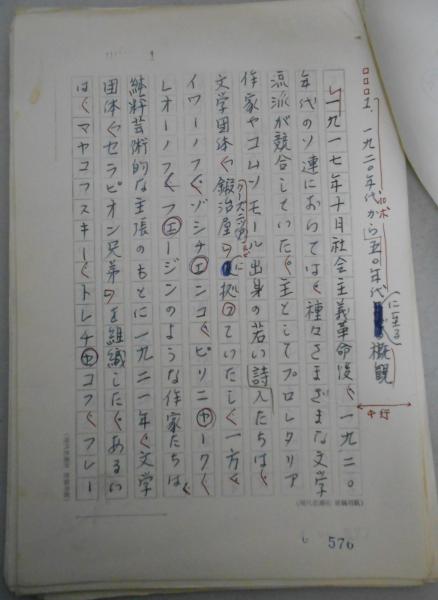 I、一九二〇年代から五〇年代に至る概観
一九一七年十月社会主義革命後、一九二〇
年代のソ連においては、種々さまざまな文学
流派が競合していた。主としてプロレタリア
作家やコムソモール出身の若い詩人たちは、
文学団体「鍛冶屋」に拠っていたし、一方、
イワーノフ、ゾシチェンコ、ピリニャーク、
レオーノフ、フェージンのような作家たちは、
純粋芸術的な主張のもとに一九二一年、文学
団体「セラピオン兄弟」を組織した。あるい
は、マヤコフスキー、トレチャコフ、フレー
576